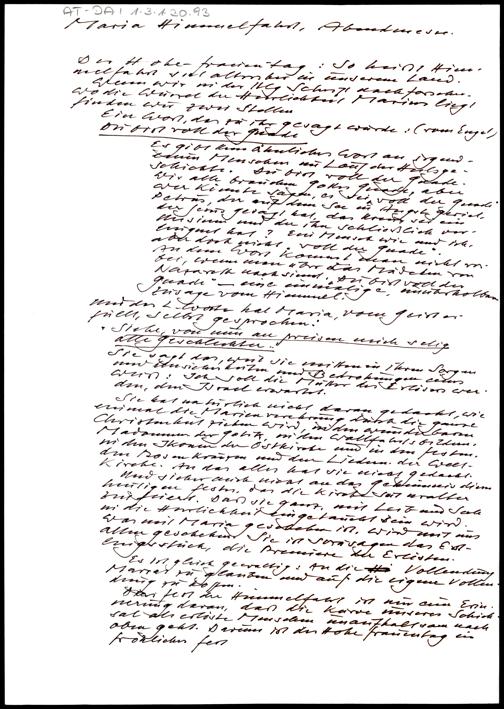 AT-DAI 1.3.1.20.93
Maria Himmelfahrt, Abendmesse.
Der Hohe frauentag: So heißt Him-
melfahrt seit altersher in unserem Land.
Wenn wir in der Hlg Schrift nachforschen
wo die Wurzel der Herrlichkeit Mariens liegt
finden wir zwei Stellen
Ein Wort, das zu ihr gesagt wurde: (vom Engel)
Du bist voll der gnade
Es gibt kein ähnliches Wort an irgend-
einen Menschen im Lauf der Heilsge-
schichte. Du bist voll der gnade.
Wir alle brauchen gottes gnade, aber
wer könnte sagen er sei voll der gnade
Petrus, der auf dem See in Angst
hat? Ein Mensch wie und ich.
aber doch nicht "voll der gnade".
An dem Wort kommt man nicht vor-
bei, wenn man über das Mädchen von
Nazareth nachsinnt. Du bist voll der
gnade" - eine einmalige, unüberholbare
Zusage vom Himmel.
und das zweite hat Maria, vom geist er-
füllt, selbst gesprochen:
"Siehe, von nun an preisen mich selig
alle geschlechter.
Sie sagt das, weil sie mitten in ihren Sorgen
und Unsicherheiten und Bedrohungen eines
weiß: Ich soll die Mutter des Erlösers wer-
den, den Israel erwartet.
Sie hat natürlich nicht daran gedacht, wie
einmal die Marienverehrung durch die ganze
Christenheit ziehen wird, in den wunderbaren
Madonnen der gotik, in den Wallfahrtsbildern
in den Ikonen der Ostkirche und in den festen
den Rosenkränzen und den Liedern der Welt-
kirche. An das alles hat sie nicht gedacht.
Und sicher auch nicht an das geheimnis dieses
heutigen festes, das die Kirche seit uralter
Zeit feiert. Daß sie ganz, mit Leib und Seele
in die Herrlichkeit eingetaucht sein wird.
Was mit Maria geschehen ist, wird mit uns
allen geschehen. Sie ist sozusagen das Erst-
lingsstück, die Premiere der Erlösten.
Es ist gleich gewaltig: An die Vollendung
Mariens zu glauben und auf die eigene Vollen-
dung zu hoffen.
Das fest der Himmelfahrt ist nur eine Erin-
nerung daran, daß die Kurve unseres Schick-
sal als erlöste Menschen unaufhaltsam nach
oben geht. Darum ist der Hohe frauentag ein
fröhliches fest